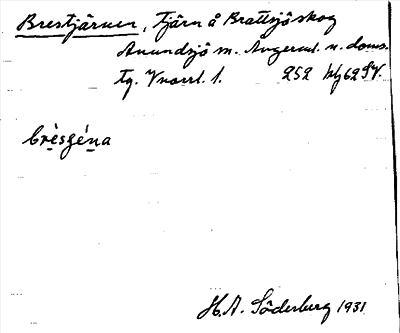 Brestjärnen, Tjärn å Brattsjöskog
Anundsjö sn. Ångerml. n. doms.
tg. Vnorrl. l. 252
brèsẹénạ
H.A. Söderberg 1931